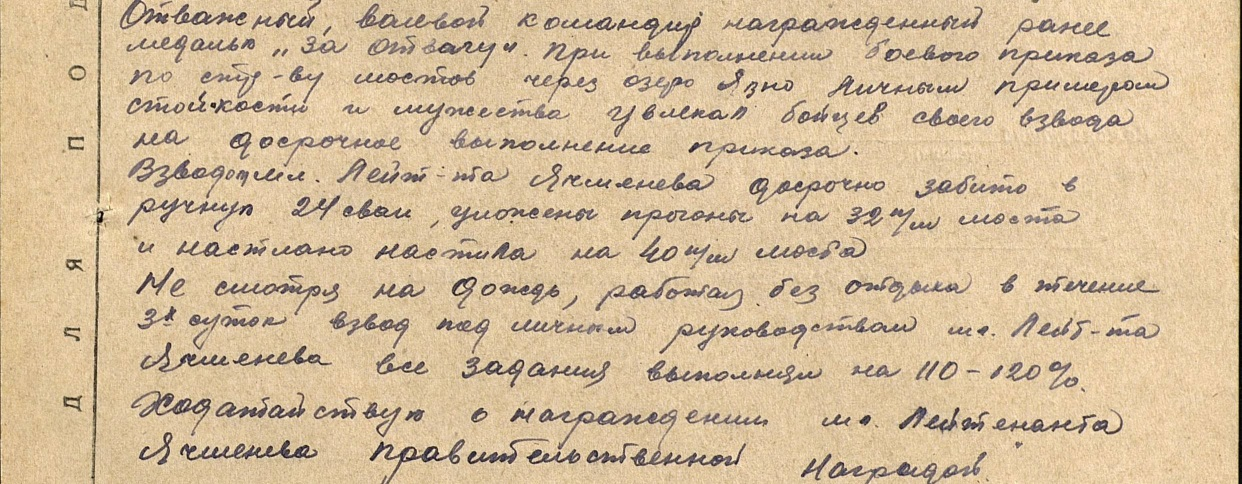 Отважный, волевой командир награжденный ранее
медалью „За отвагу“. При выполнении боевого приказа
по стр-ву мостов через озеро Язно личным примером
стойкости и мужества увлекал бойцев своего взвода
на досрочное выполнение приказа.
Взводом мл. Лейт-та Ячменева досрочно забито в
ручную 24 сваи, уложены прогоны на 32 п/м моста
и настлано настила на 40 п/м моста
Не смотря на дождь, работая без отдыха в течение
3х суток взвод под личным руководством мл. Лейт-та
Ячменева все задания выполнял на 110-120%.
Ходатайствую о награждении мл. Лейтенанта
Ячменева правительственной Наградой
ДЛЯ ПОД